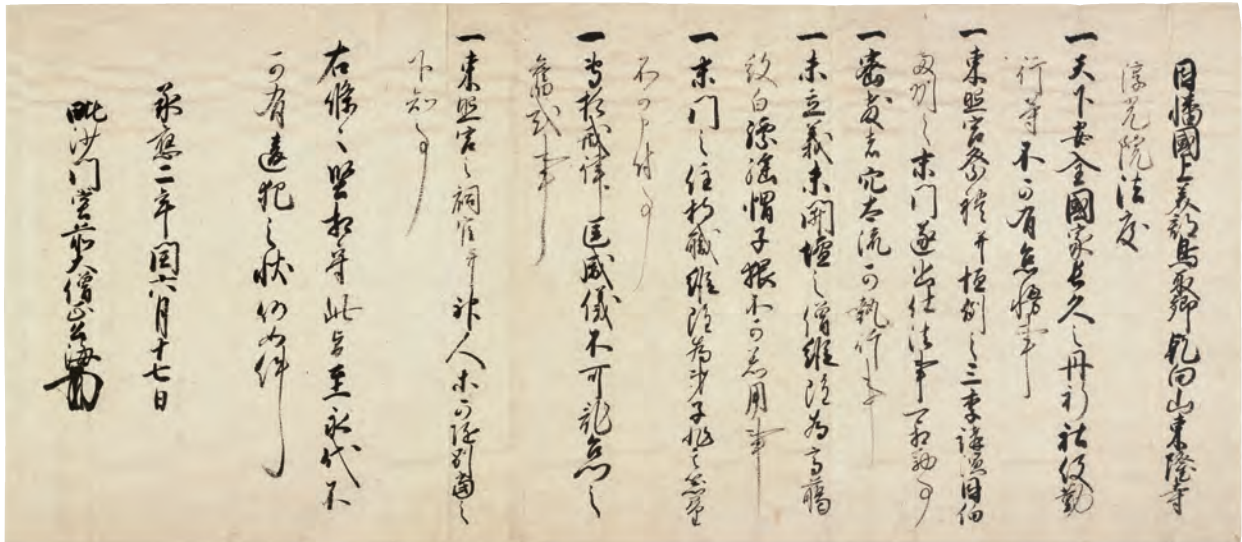 因幡國上美郡鳥取郷乾向山東隆寺
淳光院法度
一天下安全國家長久之丹祈社役勤
行等不可有怠慢事
一東照宮祭禮并恒例之三季講演因伯
両州之末門遂出仕法事可相勤事
一密教者穴太流可執行事
一未立義未開壇之僧雖陀為高臈
紋白 帽子 不可着用事
一末門之住持職雖陀為弟子非
不可申付事
一 戒律 威儀不可乱
舊式事
一東照宮之祠官并神人 可随別當之
下知事
右條々堅相守此旨至永代不
可有違犯之状仍如件
承應二年閏六月十七日
毗沙門堂前大僧正公海